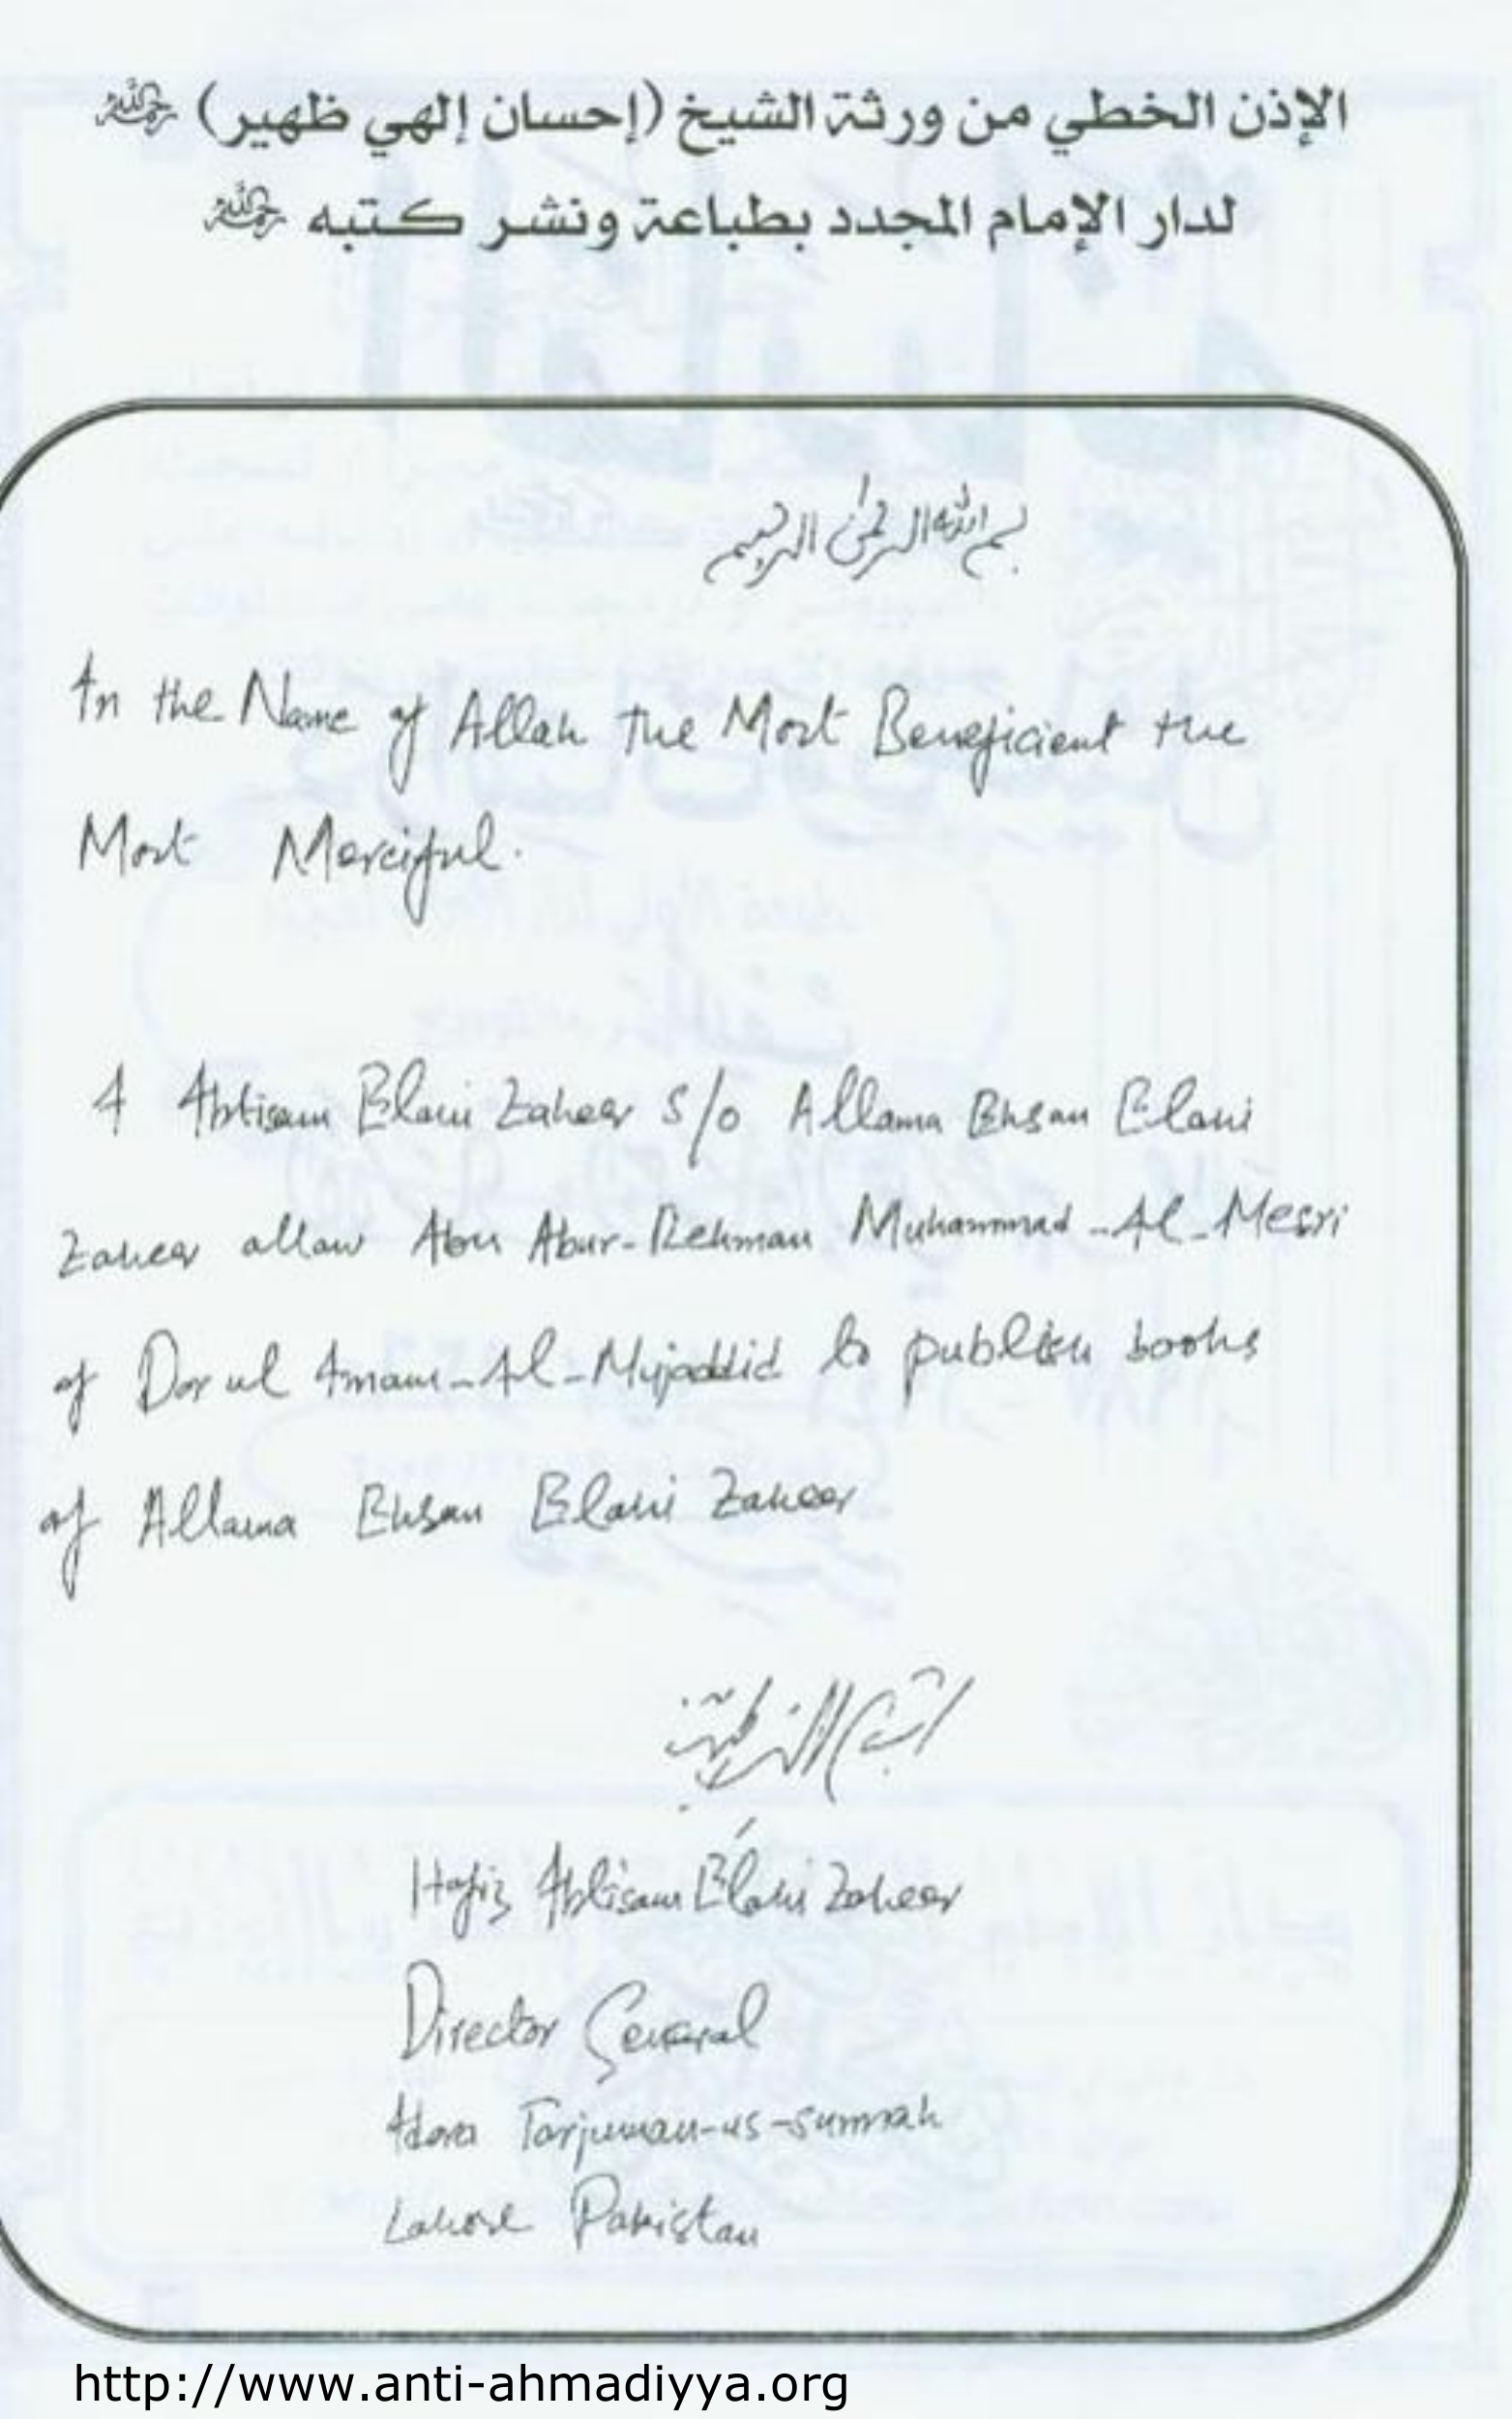 الإذن الخطي من ورثة الشيخ (إحسان إلهي ظهير) رحمه الله
لدار الإمام المجدد بطباعة ونشر كتبه رحمه الله
بسم الله الرحمن الرحيم
In the Name of Allah the Most Beneficient the
Most Merciful.
I Ibtisam Elahi Zaheer s/o Allama Ehsan Elahi
Zaheer allow Abu Abur-Rehman Muhammad-Al-Mesri
of Dar ul Imam-Al-Mujaddid to publish books
of Allama Ehsan Elahi Zaheer
Hafiz Ibtisam Elahi Zaheer
Director General
Idara Tarjuman-us-sunnah
Lahore Pakistan
http://www.anti-ahmadiyya.org